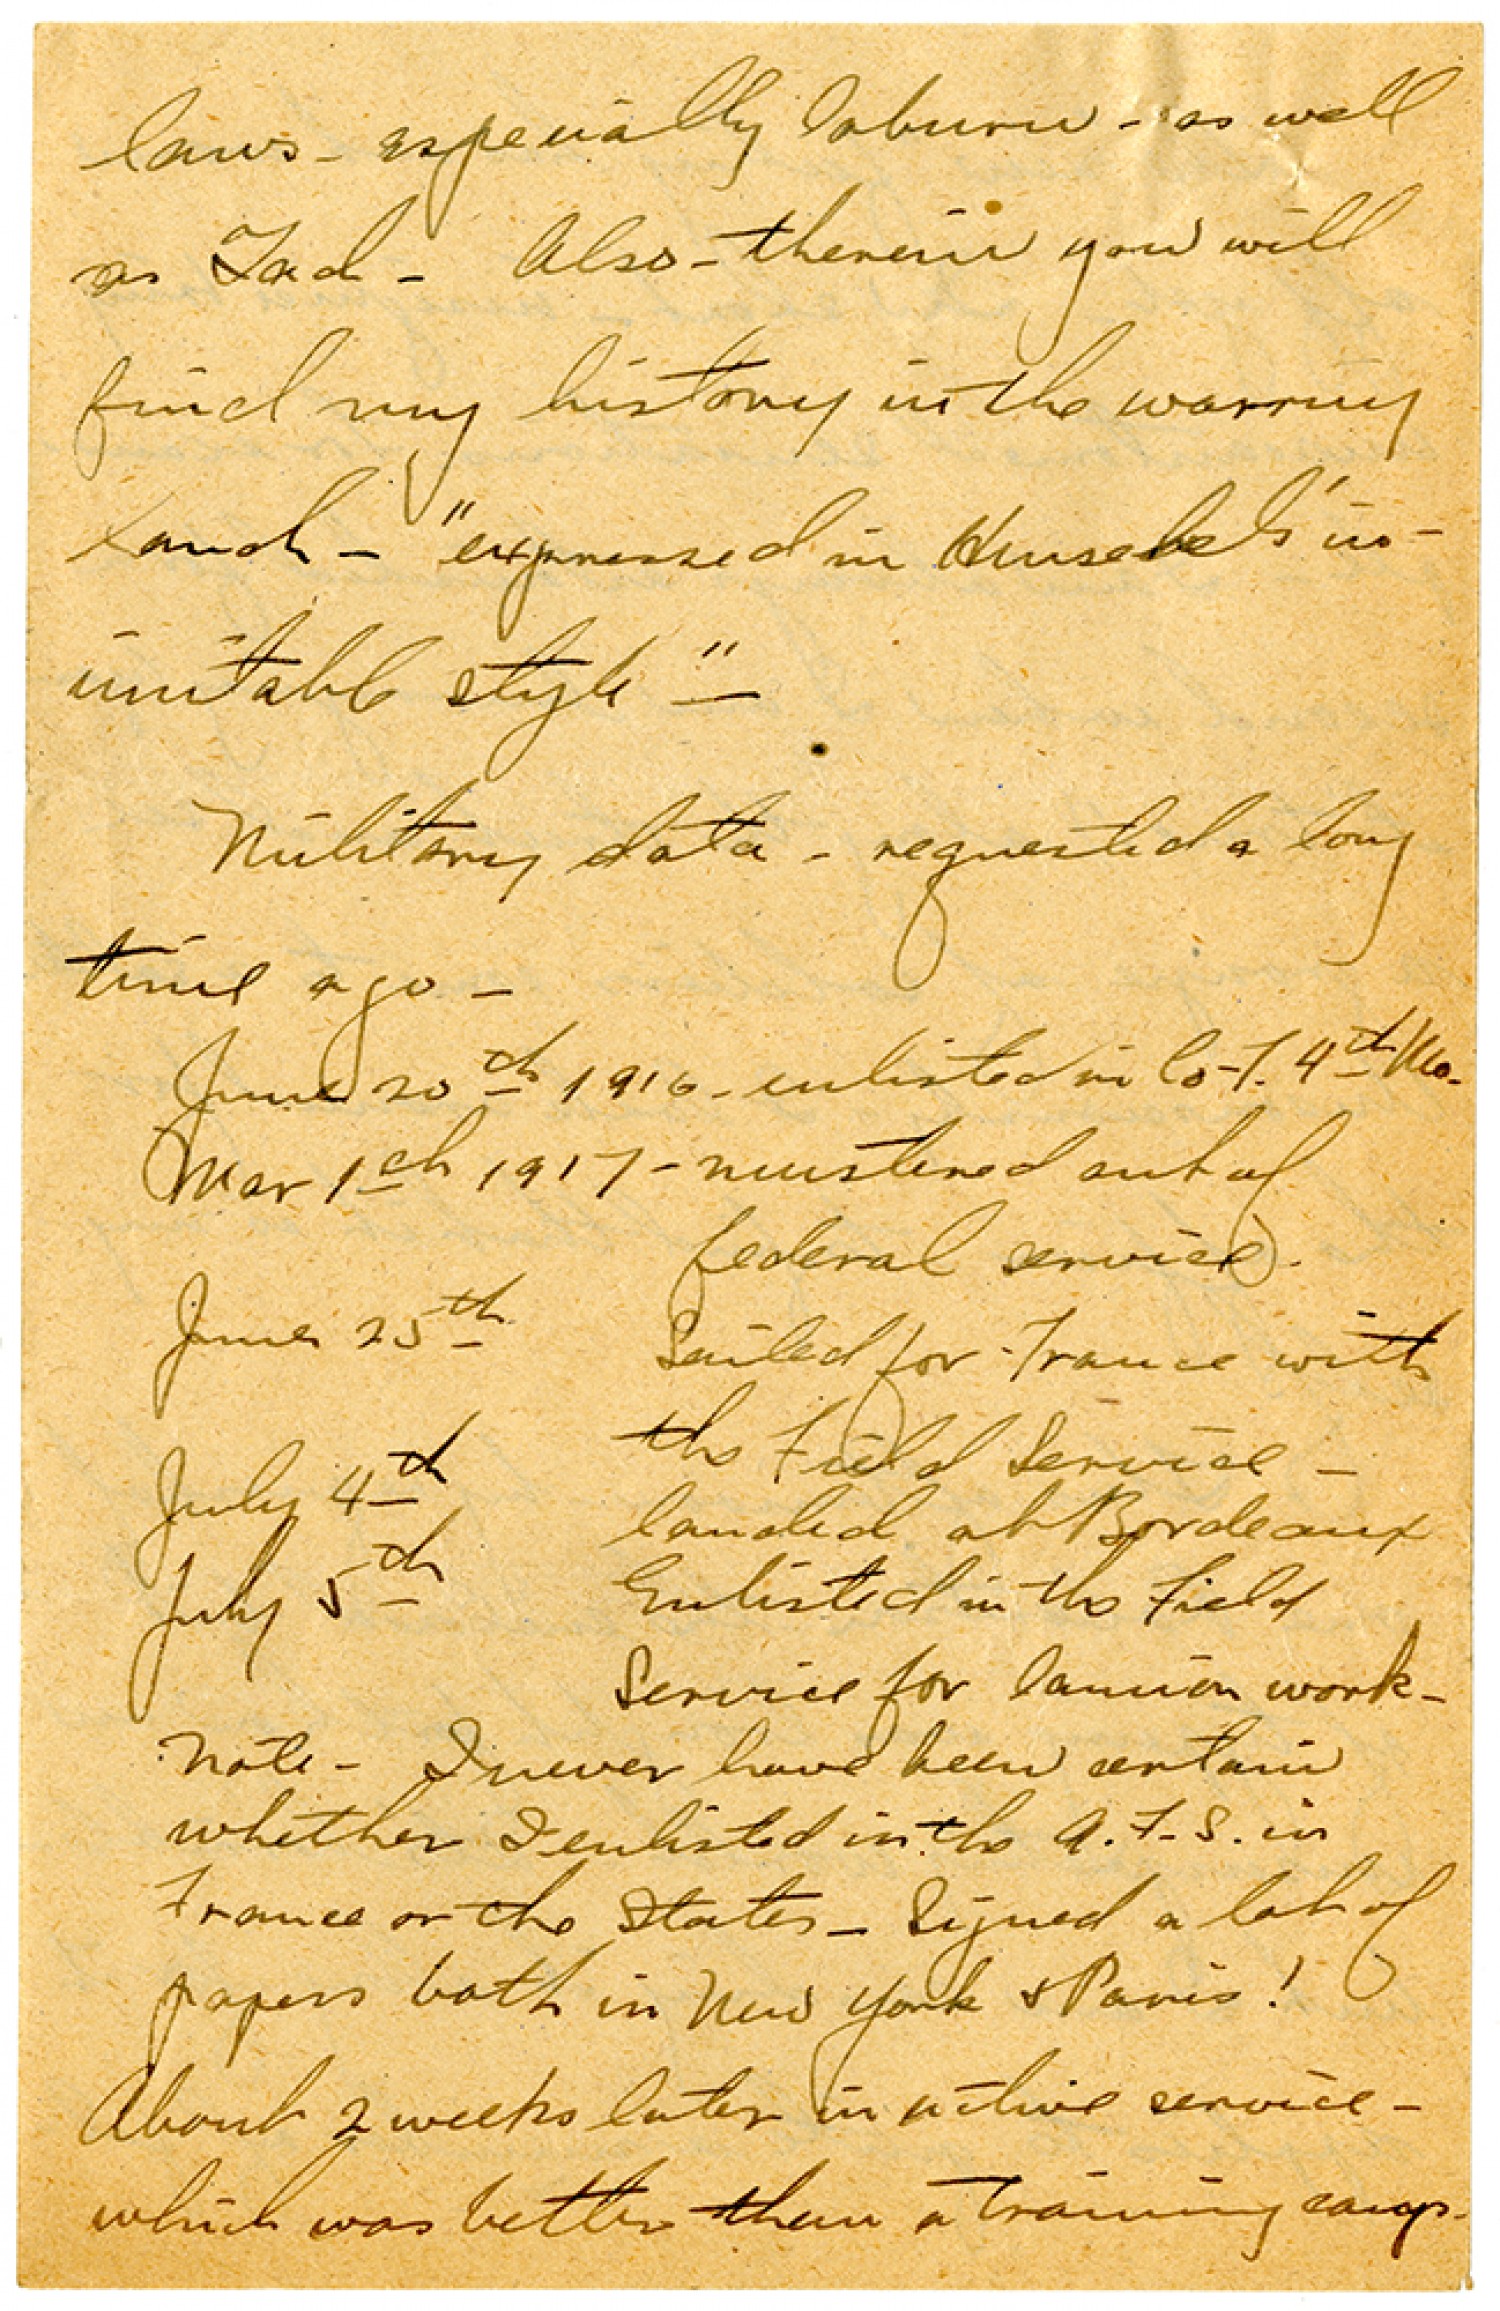 laws - especially Laburn - as well
as Tad - Also - therein you will
find my history in the warring
land - "expressed in Husebel's in-
imitable style" -
Military data - requested a long
time ago -
June 20th 1916 - enlisted in Co. F. 4th Mo.
Mar 1st 1917 - mustered out of
federal service.
June 25th Sailed for France with
the Field Service -
July 4th landed at Bordeaux
July 5th Enlisted in the Field
Service for camion work -
Note - I never have been certain
whether I enlisted in the A.F.S. in
France or the States - Signed a lot of
papers both in New York & Paris!
About 2 weeks later in active service -
which was better than a training camp.